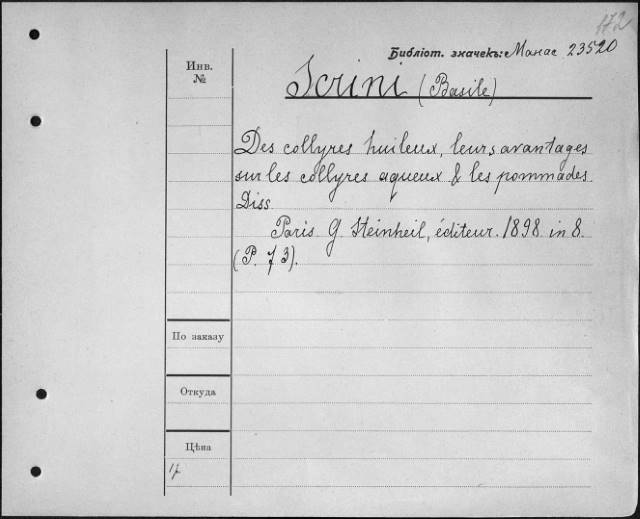 172
Библіот. значекъ: Манас 23520
Инв.
№
Scrini (Basile)
Des collyres huileux, leurs avantages
sur les collyres aqueux & les pommades
Diss
Paris G. Steinheil, éditeur. 1898 in 8.
(P. 73).
По заказу
Откуда
Цѣна